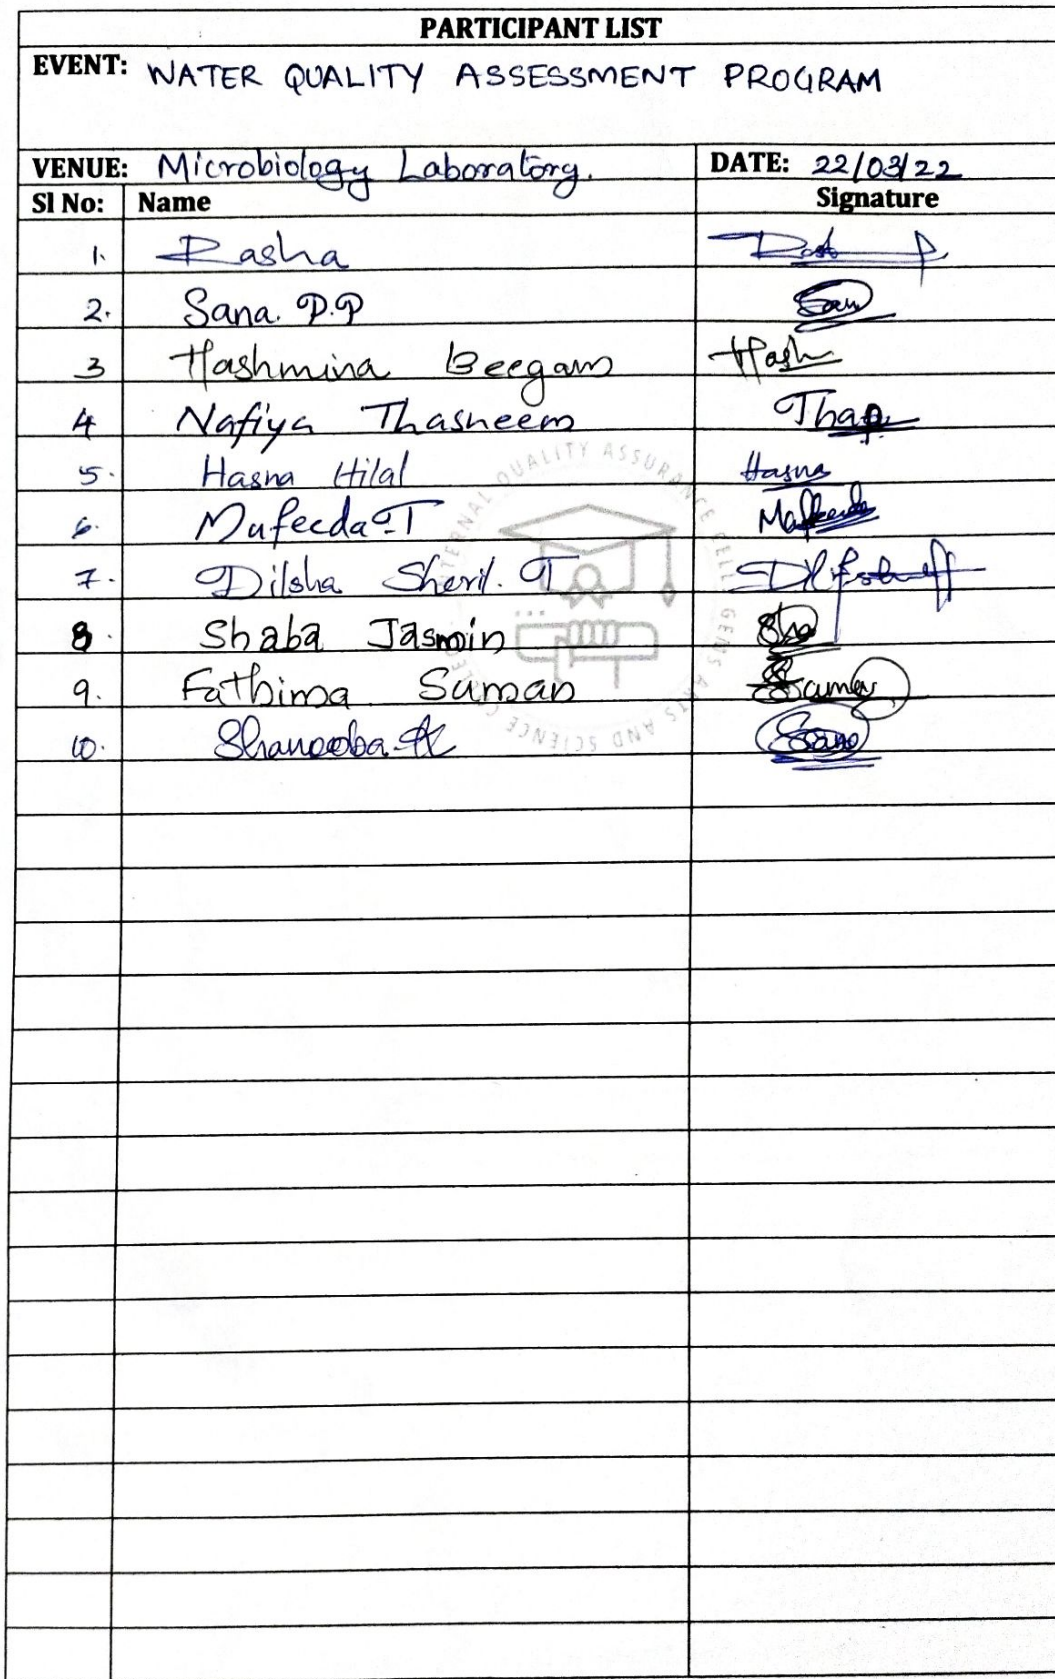 PARTICIPANT LIST
EVENT: WATER QUALITY ASSESSMENT PROGRAM
VENUE: Microbiology Laboratory. DATE: 22/03/22
Sl No: Name Signature
1. Rasha
2. Sana. P.P
3 Hashmina Beegam Hash
4 Nafiya Thasneem
5. Hasna Hilal Hasna
6. Mufeeda T
7. Dilsha Sheril. T
8. Shaba Jasmin Sha
9. Fathima Suman
10. Shanooba
INTERNAL QUALITY ASSURANCE CELL GEMS ARTS AND SCIENCE COLLEGE